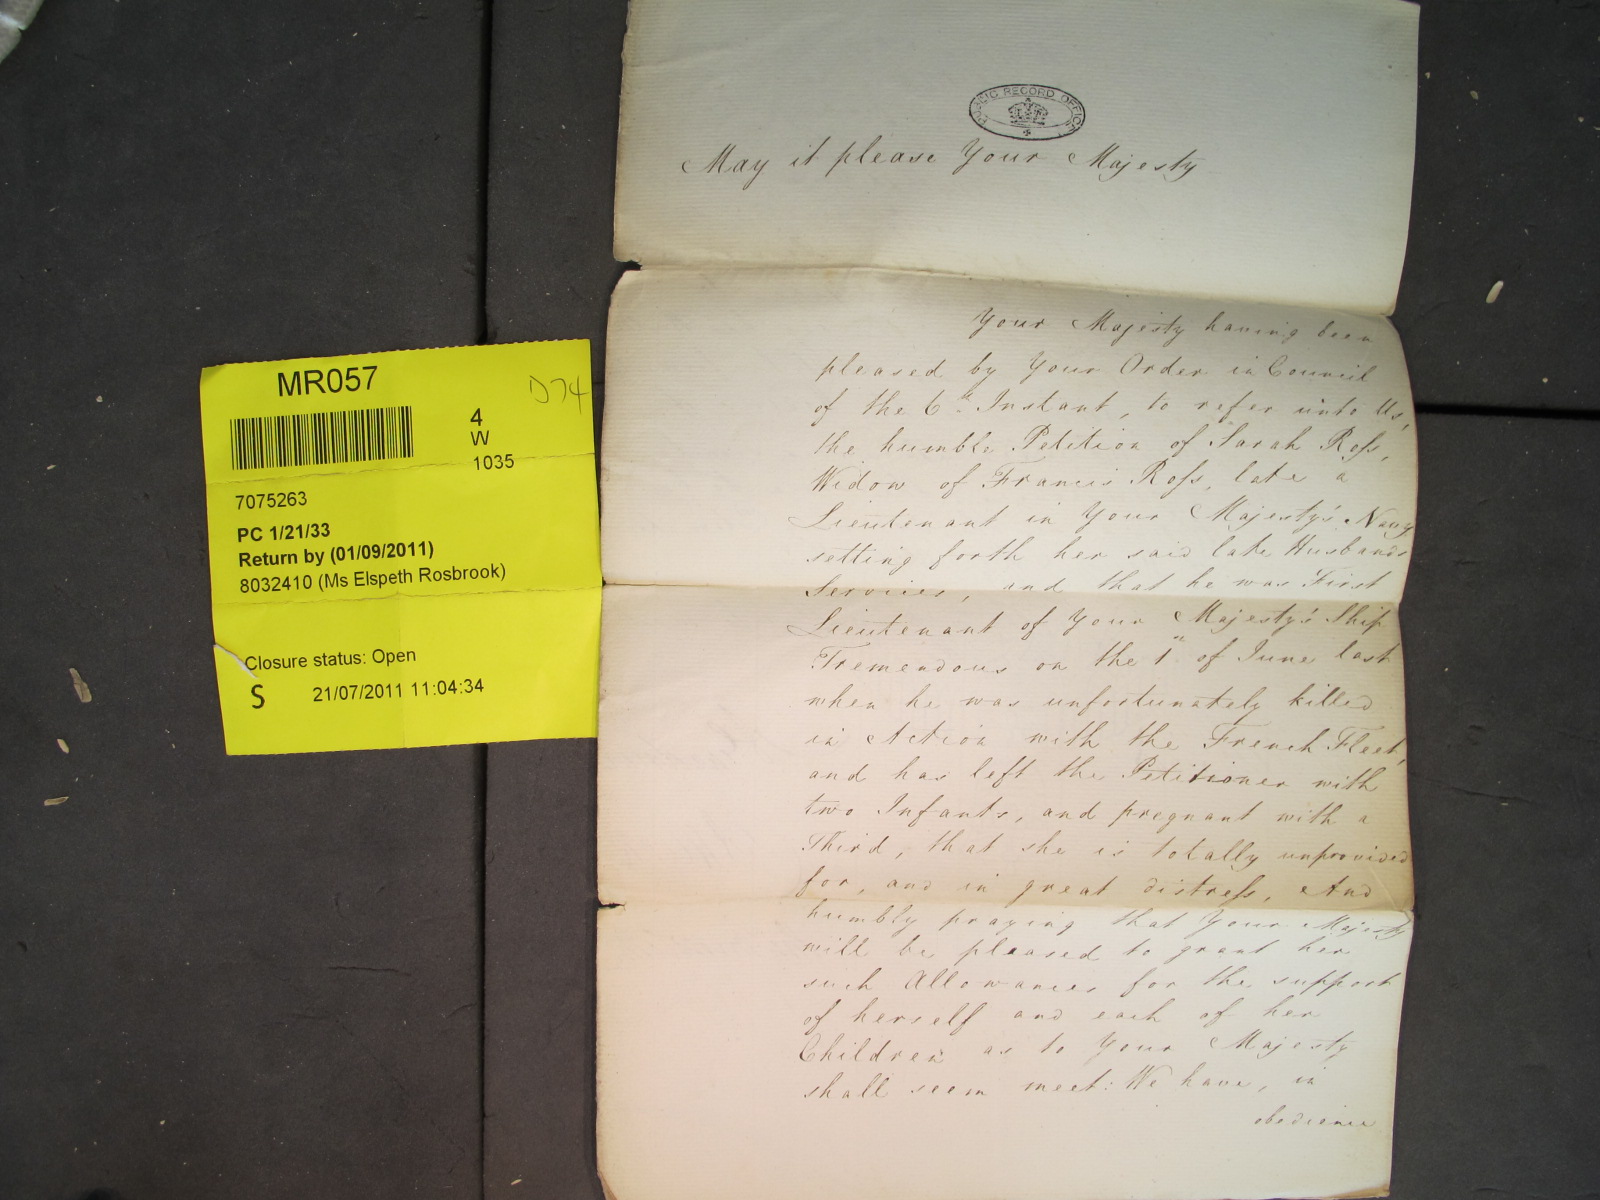 PUBLIC RECORD OFFICE
May it please Your Majesty
Your Majesty having been
pleased by Your Order in Council
of the 6th Instant, to refer unto Us,
the humble Petition of Sarah Roſs,
Widow of Francis Roſs, late a
Lieutenant in Your Majesty's Navy
setting forth her said late Husbands
Services, and that he was First
Lieutenant of Your Majesty's Ship
Tremendous on the 1st of June last
when he was unfortunately killed
in Action with the French Fleet,
and has left the Petitioner with
two Infants, and pregnant with a
Third, that she is totally unprovided
for, and in great distreſs, And
humbly praying that Your Majesty
will be pleased to grant her
such Allowances for the support
of herself and each of her
Children as to Your Majesty
shall seem meet: We have, in
obedience
MR057
D74
4
W
1035
7075263
PC 1/21/33
Return by (01/09/2011)
8032410 (Ms Elspeth Rosbrook)
Closure status: Open
S 21/07/2011 11:04:34